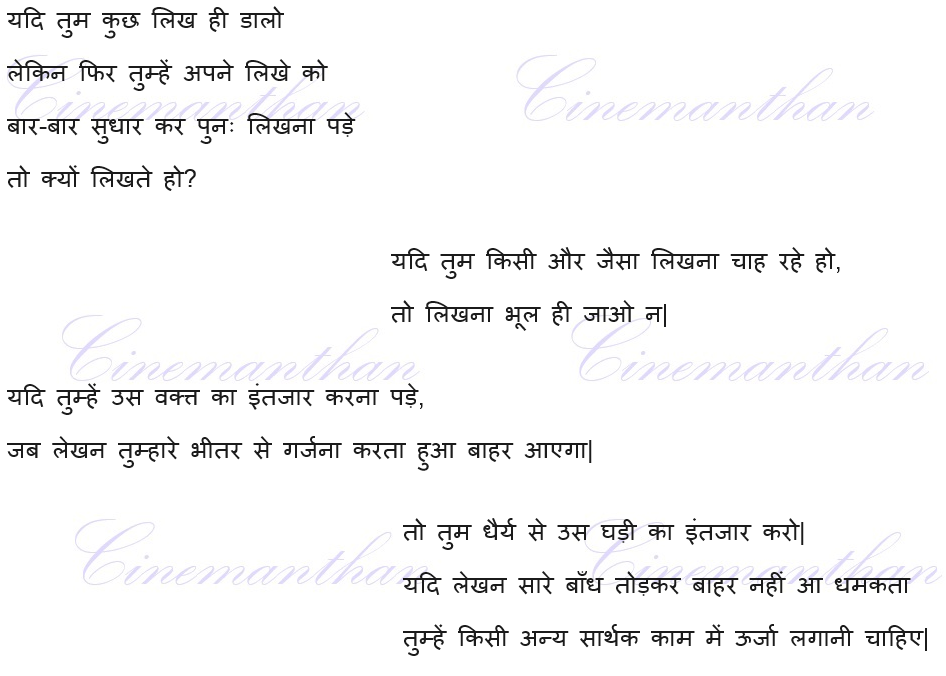 यदि तुम कुछ लिख ही डालो
लेकिन फिर तुम्हें अपने लिखे को
बार-बार सुधार कर पुनः लिखना पड़े
तो क्यों लिखते हो?
यदि तुम किसी और जैसा लिखना चाह रहे हो,
तो लिखना भूल ही जाओ न|
यदि तुम्हें उस वक्त का इंतजार करना पड़े,
जब लेखन तुम्हारे भीतर से गर्जना करता हुआ बाहर आएगा|
तो तुम धैर्य से उस घड़ी का इंतजार करो|
यदि लेखन सारे बाँध तोड़कर बाहर नहीं आ धमकता
तुम्हें किसी अन्य सार्थक काम में ऊर्जा लगानी चाहिए|
Cinemanthan
Cinemanthan
Cinemanthan
Cinemanthan
Cinemanthan
Cinemanthan